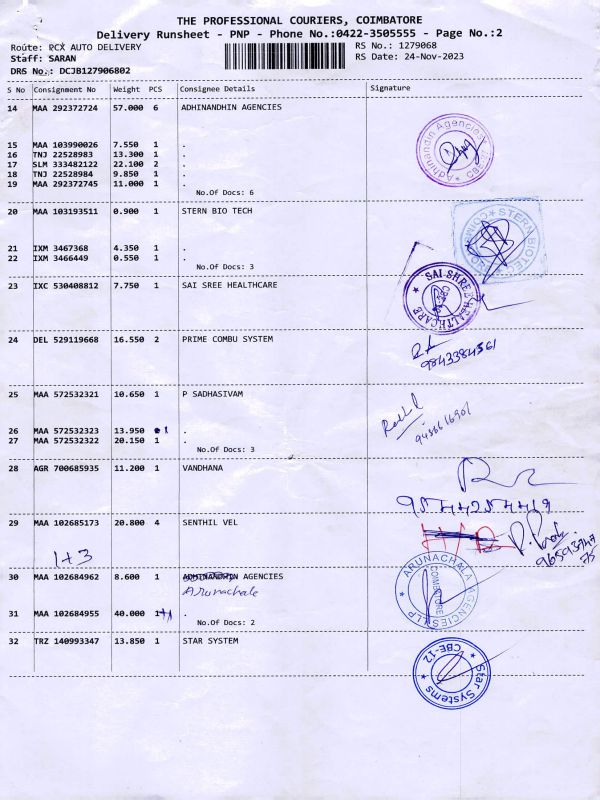 THE PROFESSIONAL COURIERS, COIMBATORE
Delivery Runsheet - PNP - Phone No.:0422-3505555 - Page No.:2
Route: PCX AUTO DELIVERY RS No.: 1279068
Staff: SARAN RS Date: 24-Nov-2023
DRS No.: DCJB127906802
S No Consignment No Weight PCS Consignee Details Signature
14 MAA 292372724 57.000 6 ADHINANDHIN AGENCIES
15 MAA 103990026 7.550 1 .
16 TNJ 22528983 13.300 1 .
17 SLM 333482122 22.100 2 .
18 TNJ 22528984 9.850 1 .
19 MAA 292372745 11.000 1 .
No.Of Docs: 6
Adhinandin Agencies CBE
20 MAA 103193511 0.900 1 STERN BIO TECH
21 IXM 3467368 4.350 1 .
22 IXM 3466449 0.550 1 .
No.Of Docs: 3
STERN BIOTECH
23 IXC 530408812 7.750 1 SAI SREE HEALTHCARE
SAI SHREE HEALTHCARE
24 DEL 529119668 16.550 2 PRIME COMBU SYSTEM
9843384561
25 MAA 572532321 10.650 1 P SADHASIVAM
26 MAA 572532323 13.950 1 .
27 MAA 572532322 20.150 1 .
No.Of Docs: 3
28 AGR 700685935 11.200 1 VANDHANA
29 MAA 102685173 20.800 4 SENTHIL VEL
1+3
30 MAA 102684962 8.600 1 AGENCIES
Arunachale
31 MAA 102684955 40.000 1+1 .
No.Of Docs: 2
ARUNACHALA AGENCIES LLP
COIMBATORE
32 TRZ 140993347 13.850 1 STAR SYSTEM
CBE-12
Star Systems